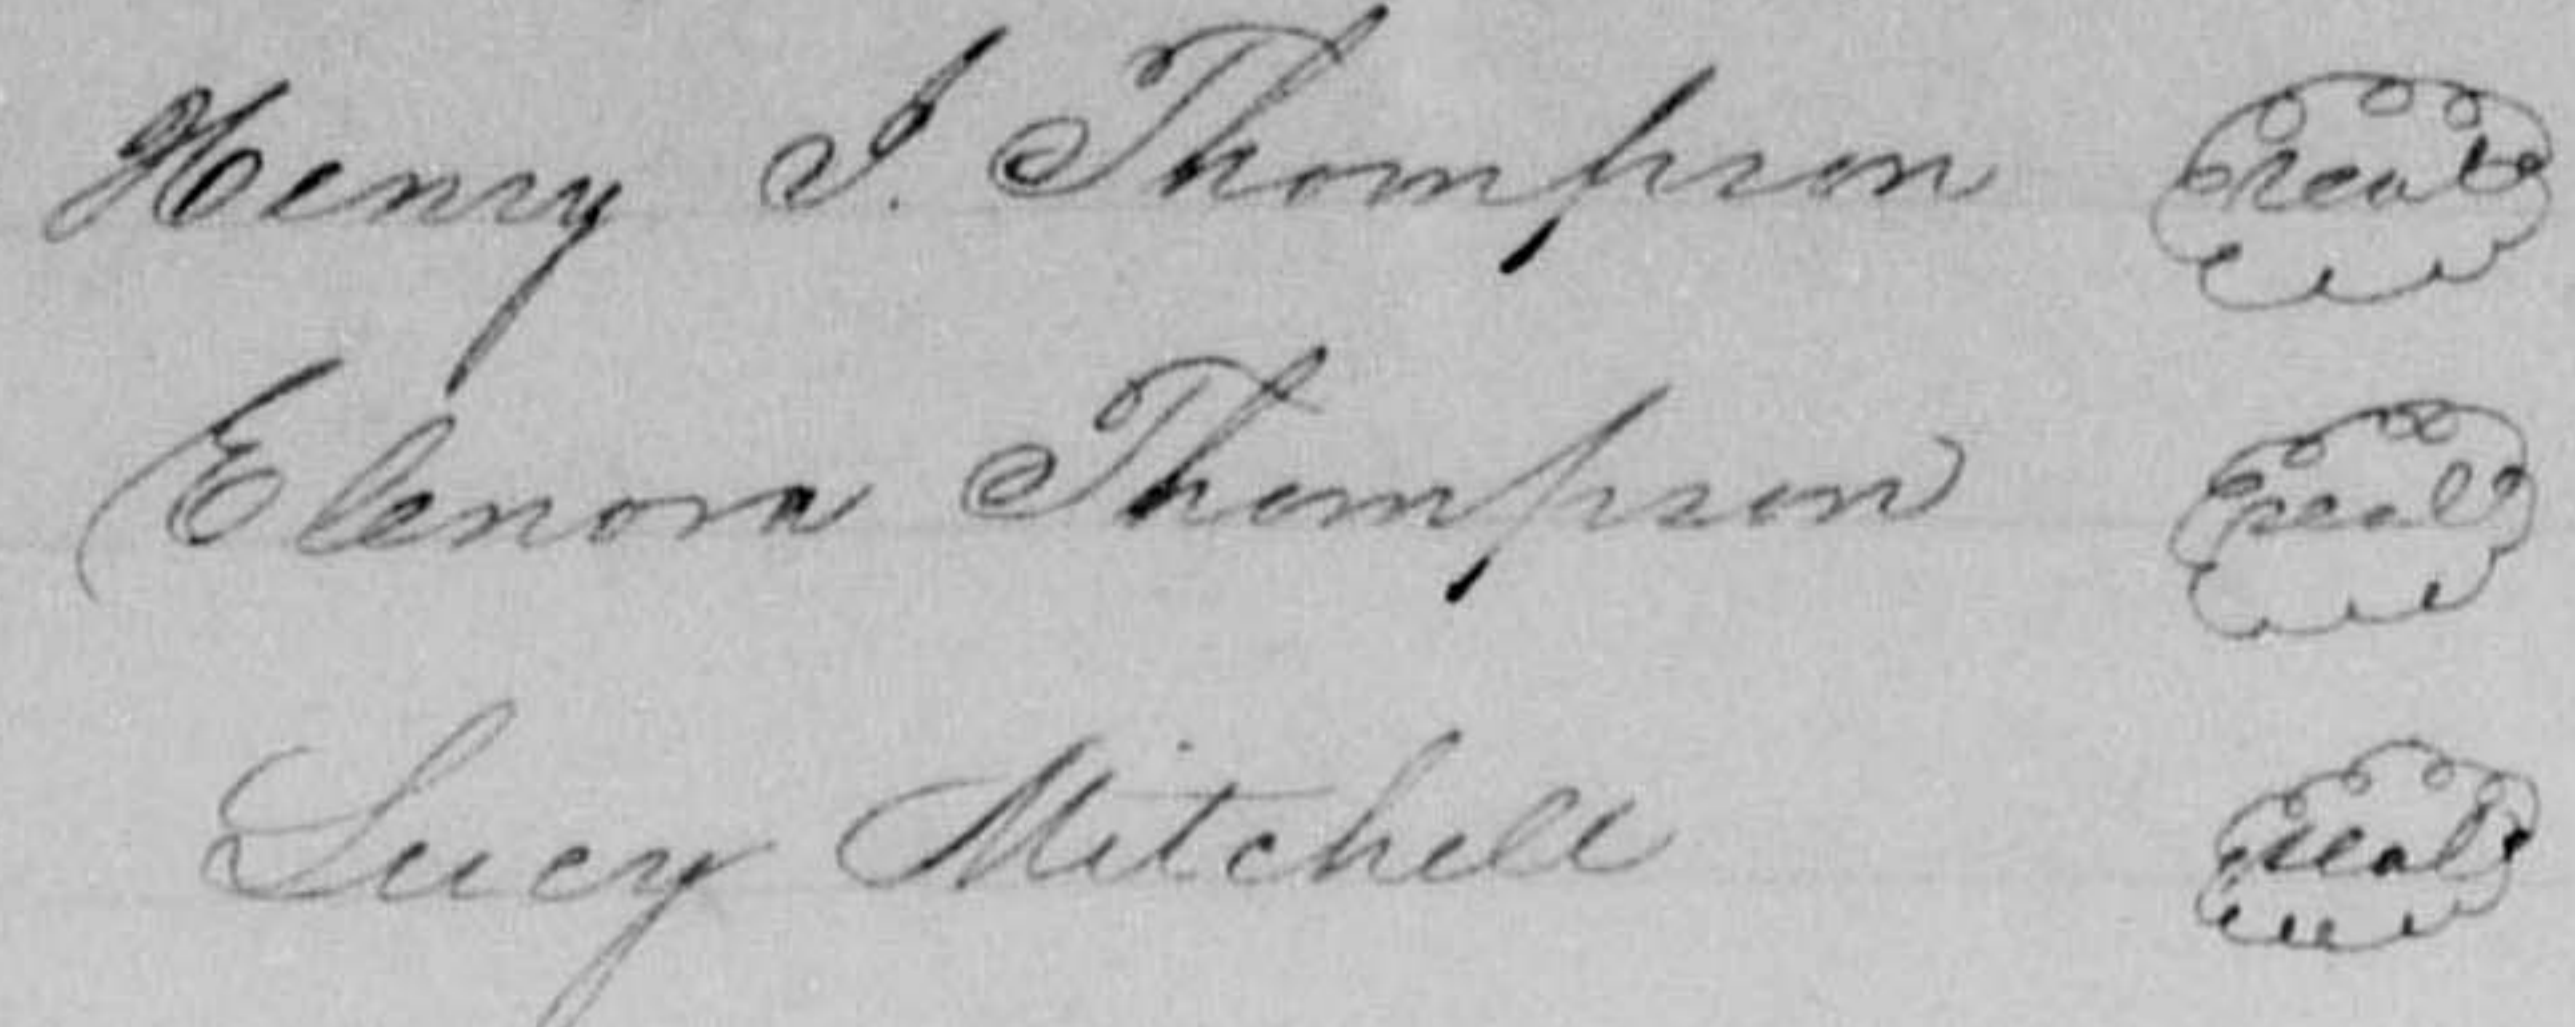 Henry I. Thompson seal
Elenora Thompson seal
Lucy Mitchell seal